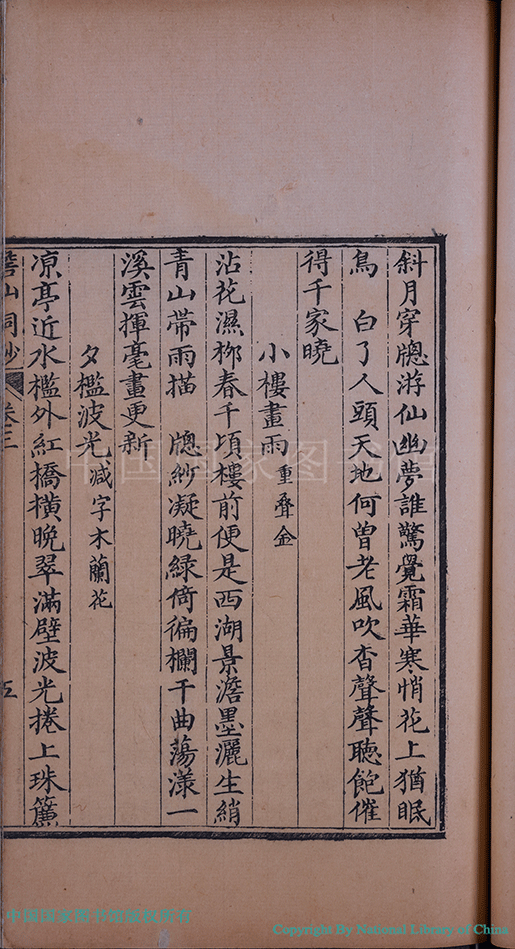 斜月穿牕游仙幽夢誰驚覺霜華寒悄花上猶眠
鳥　白了人頭天地何曾老風吹杳聲聲聽飽催
得千家曉
小樓畫雨重疊金
沾花濕柳春千頃樓前便是西湖景澹墨灑生綃
青山帶雨描　牕紗凝曉綠倚徧欄干曲蕩漾一
溪雲揮毫畫更新
夕檻波光減字木蘭花
凉亭近水檻外紅橋橫晚翠滿壁波光捲上珠簾
山詞鈔 卷三 五
中国国家图书馆
中国国家图书馆版权所有
Copyright By National Library of China